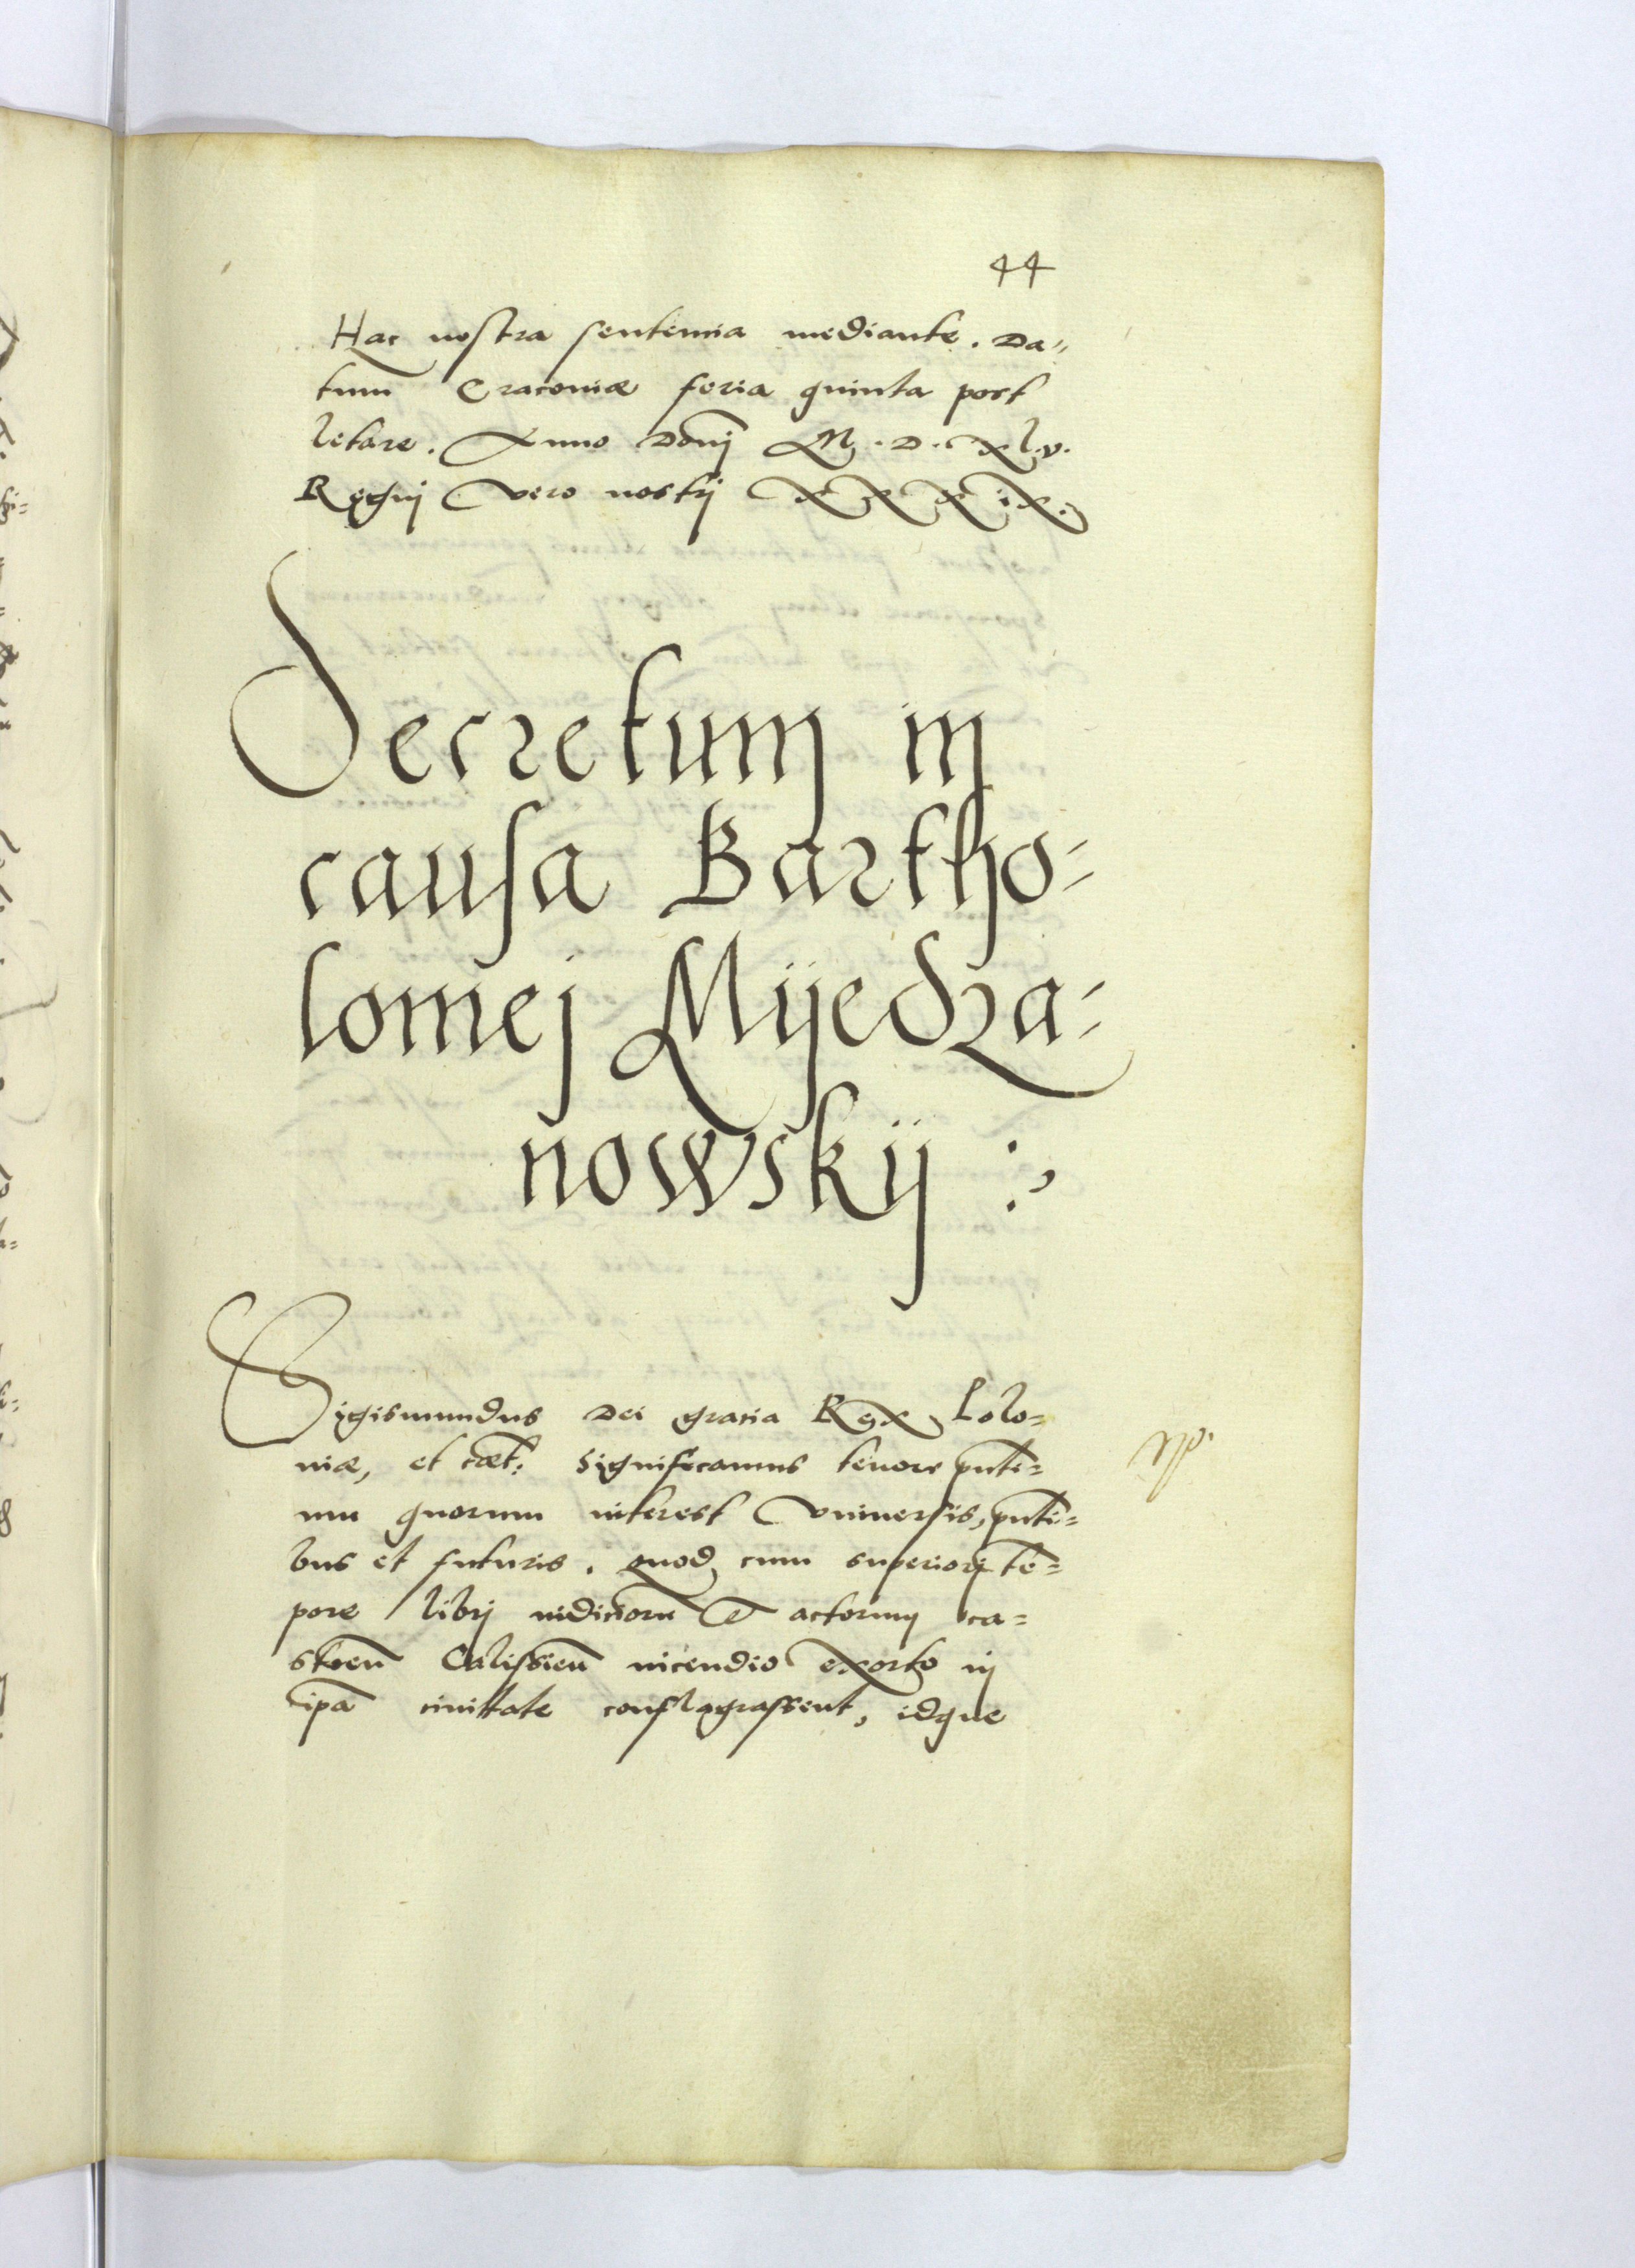 44
Hac nostra sententia mediante. Da=
tum Cracoviæ feria quinta post
letare. Anno Dōnj M. D. xl.v.
Regnj vero nostrj XXXiX.
Decretum in
causa Bartho=
lomej Mijedza=
nowskij :
Sigismundus Dei gracia Rex Polo=
niæ, et cæt: Significamus tenore pnti=
um quorum interest vniuersis, pnti=
bus et futuris. quod cum superiorj tē=
pore librj iudiciorū et actorum ca=
streñ Calissieñ incendio exorto in
ipā ciuitate conflagrassent, idque